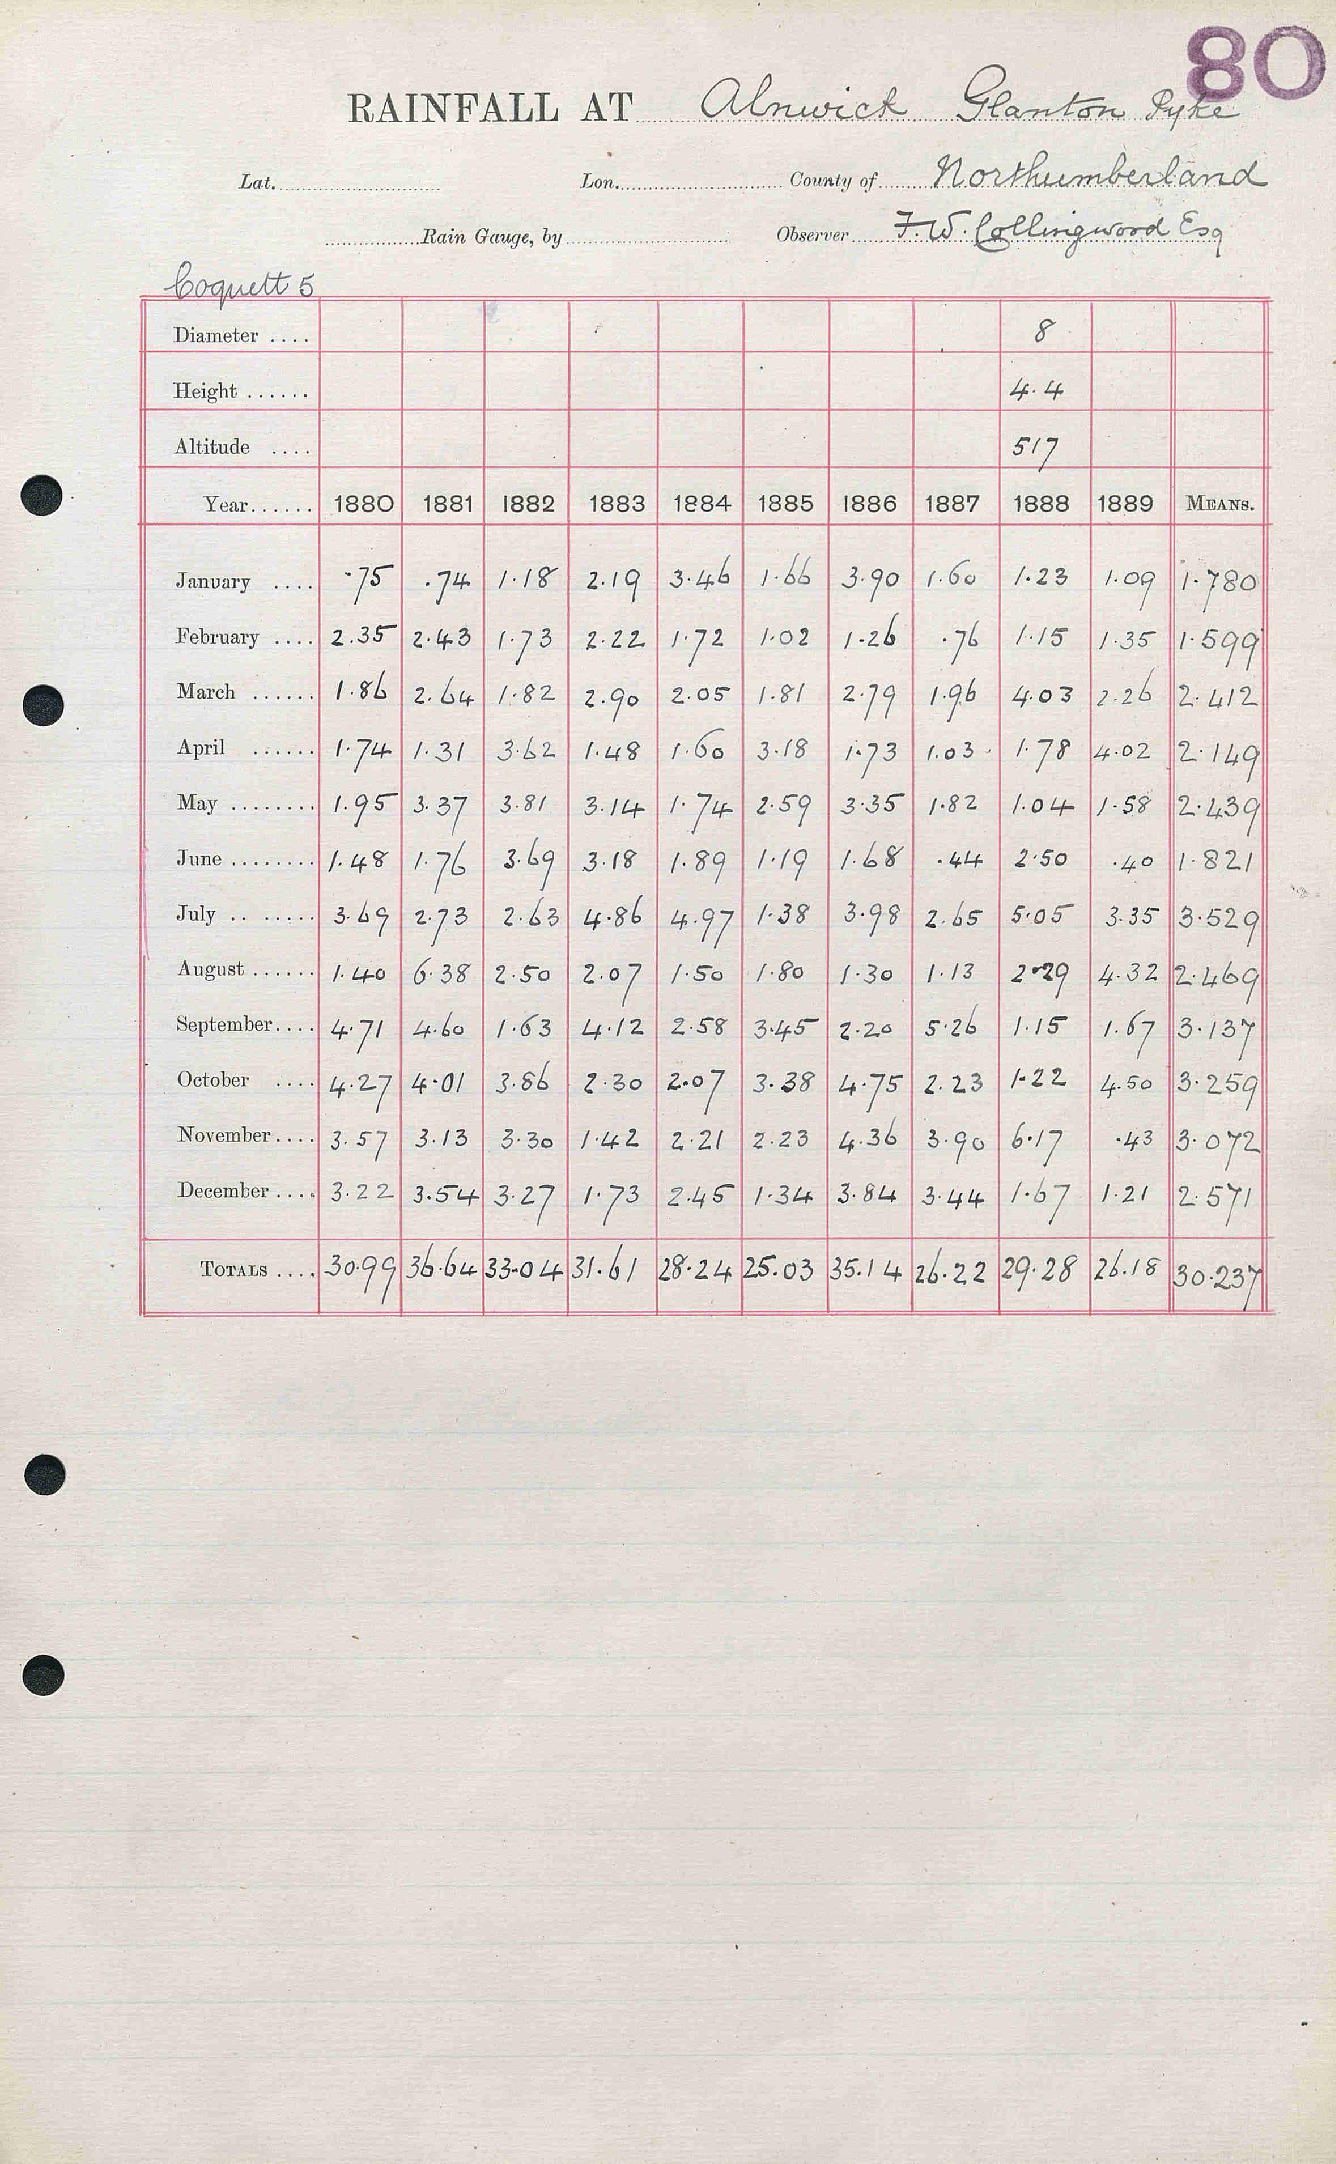 80
RAINFALL AT Alnwick Glanton Pyke
Lat. Lon. County of Northumberland
Rain Gauge, by Observer F. W. Collingwood Esq
Coquett 5
Diameter .... 8
Height ...... 4.4
Altitude .... 517
Year...... 1880 1881 1882 1883 1884 1885 1886 1887 1888 1889 MEANS.
January .... .75 .74 1.18 2.19 3.46 1.66 3.90 1.60 1.23 1.09 1.780
February .... 2.35 2.43 1.73 2.22 1.72 1.02 1.26 .76 1.15 1.35 1.599
March ...... 1.86 2.64 1.82 2.90 2.05 1.81 2.79 1.96 4.03 2.26 2.412
April ...... 1.74 1.31 3.62 1.48 1.60 3.18 1.73 1.03 1.78 4.02 2.149
May ........ 1.95 3.37 3.81 3.14 1.74 2.59 3.35 1.82 1.04 1.58 2.439
June ........ 1.48 1.76 3.69 3.18 1.89 1.19 1.68 .44 2.50 .40 1.821
July .. ...... 3.69 2.73 2.63 4.86 4.97 1.38 3.98 2.65 5.05 3.35 3.529
August ...... 1.40 6.38 2.50 2.07 1.50 1.80 1.30 1.13 2.29 4.32 2.469
September.... 4.71 4.60 1.63 4.12 2.58 3.45 2.20 5.26 1.15 1.67 3.137
October .... 4.27 4.01 3.86 2.30 2.07 3.38 4.75 2.23 1.22 4.50 3.259
November.... 3.57 3.13 3.30 1.42 2.21 2.23 4.36 3.90 6.17 .43 3.072
December.... 3.22 3.54 3.27 1.73 2.45 1.34 3.84 3.44 1.67 1.21 2.571
TOTALS .... 30.99 36.64 33.04 31.61 28.24 25.03 35.14 26.22 29.28 26.18 30.237